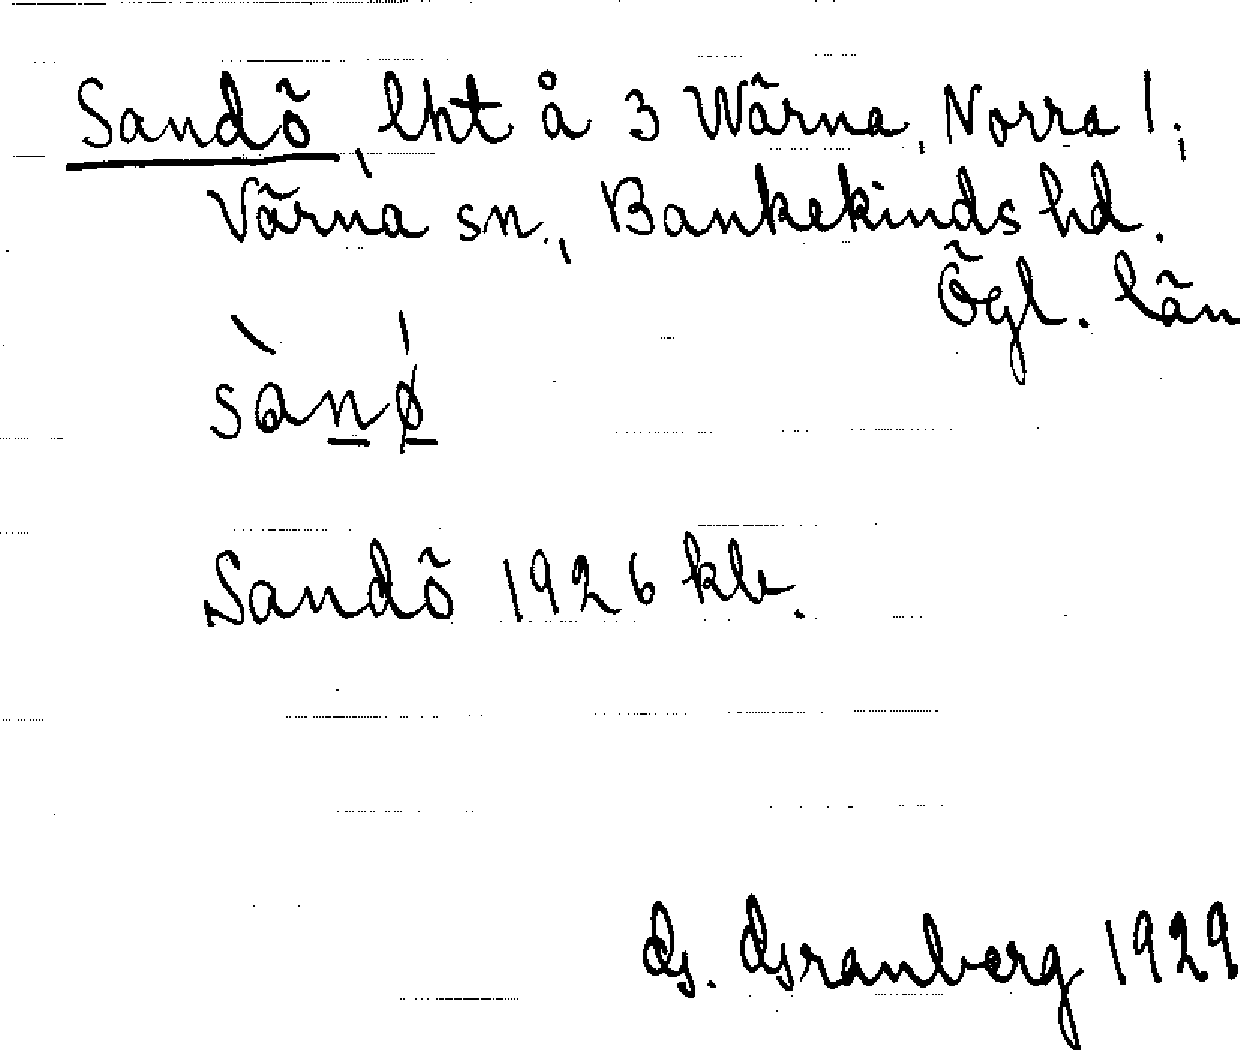 Sandö, lht å 3 Wärna, Norra!;
Värna sn., Bankekinds hd.
Ögl. län
sànǿ
Sandö 1926 kb.
G. Granberg 1929